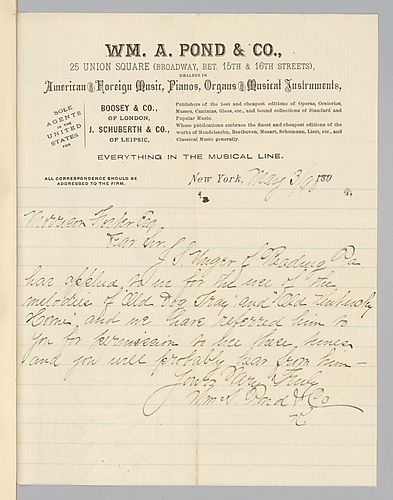 WM. A. POND & CO.,
25 UNION SQUARE (BROADWAY, BET. 15TH & 16TH STREETS),
DEALERS IN
American and Foreign Music, Pianos, Organs and Musical Instruments,
SOLE AGENTS IN THE UNITED STATES FOR
BOOSEY & CO.,
OF LONDON,
J. SCHUBERTH & CO.,
OF LEIPSIC,
Publishers of the best and cheapest editions of Operas, Oratorios,
Masses, Cantatas, Glees, etc., and bound collections of Standard and
Popular Music.
Whose publications embrace the finest and cheapest editions of the
works of Mendelssohn, Beethoven, Mozart, Schumann, Liszt, etc., and
Classical Music generally.
EVERYTHING IN THE MUSICAL LINE.
ALL CORRESPONDENCE SHOULD BE
ADDRESSED TO THE FIRM.
New York, May 3/98 189
Morrison Foster Esq
Dear Sir.
J. S. Unger of Reading Pa
has applied to us for the use of the
melodies of "Old Dog Tray" and "Old Kentucky
Home" and we have referred him to
you for permission to use these tunes
and you will probably hear from him —
Yours Very Truly
Wm A Pond & Co